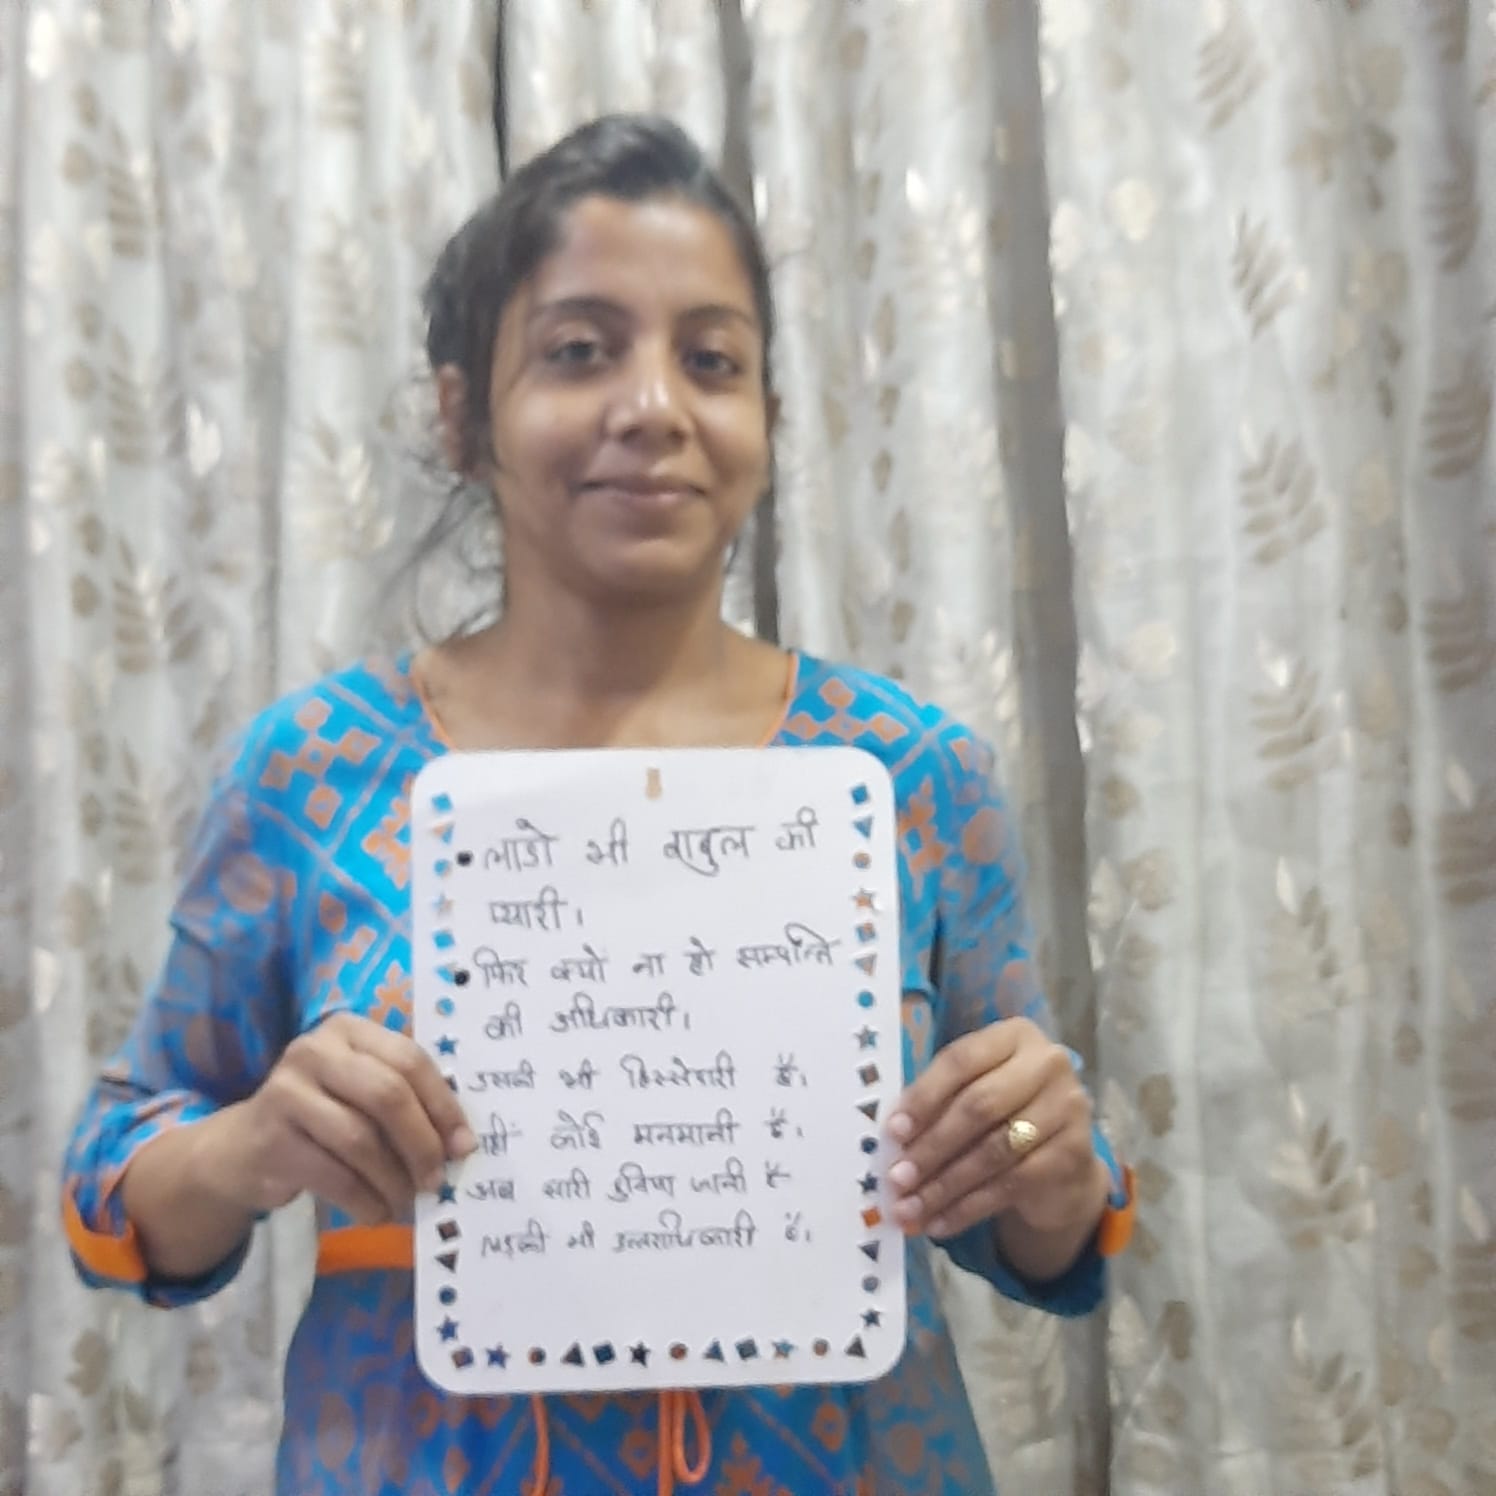 • लाडो भी बाबुल की
प्यारी।
• फिर क्यों ना हो सम्पत्ति
की अधिकारी।
उसकी भी हिस्सेदारी है।
नहीं कोई मनमानी है।
अब सारी दुविधा जानी है
लड़की भी उत्तराधिकारी है।